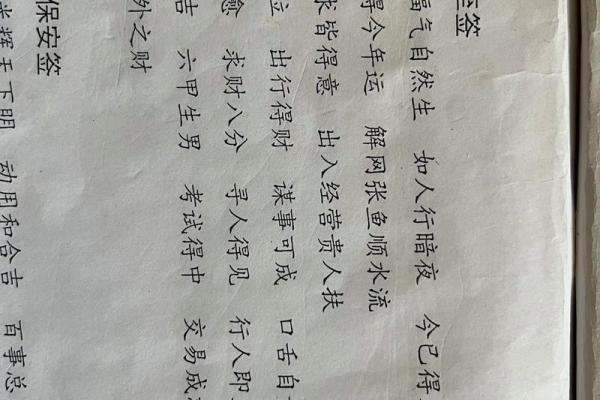 签
福气自然生 如人行暗夜 今已得
得今年运 解网张鱼顺水流
求皆得意 出入经营贵人扶
出行得财 谋事可成 口舌自
愈 求财八分 寻人得见 行人即
吉 六甲生男 考试得中 交易成
外之财
保安签
辉天下明 动用和合吉 百事总